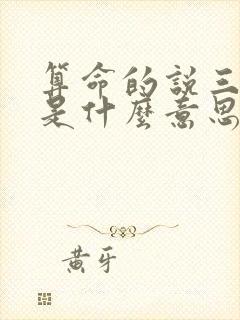 算命的說三
是什麼意思
黃牙